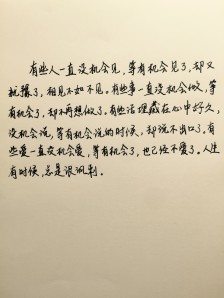 有些人一直没机会见，等有机会见了，却又
犹豫了，相见不如不见。有些事一直没机会做，等
有机会了，却不再想做了。有些话埋藏在心中好久，
没机会说，等有机会说的时候，却说不出口了。有
些爱一直没机会爱，等有机会了，也已经不爱了。人生
有时候，总是很讽刺。